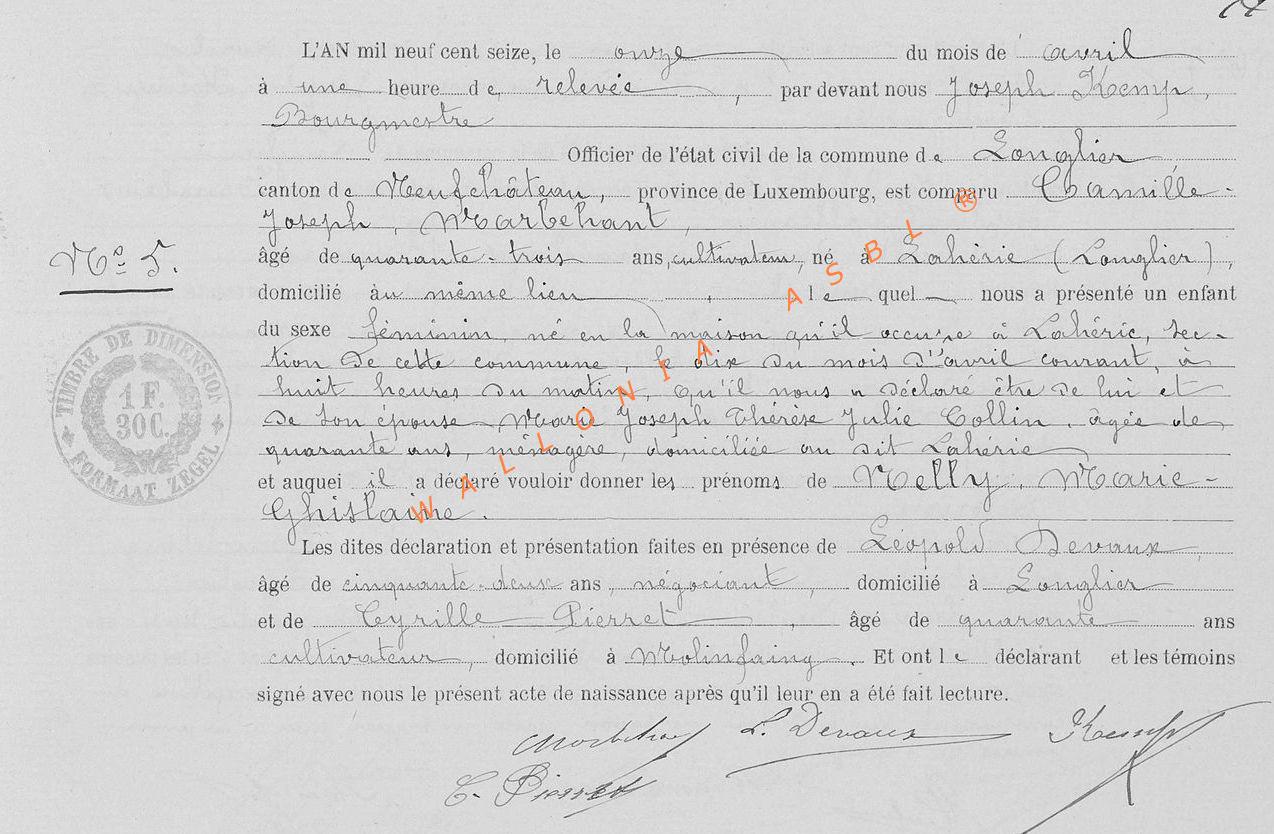 L'AN mil neuf cent seize, le onze du mois de avril
à une heure de relevée, par devant nous Joseph Kemp,
Bourgmestre
Officier de l'état civil de la commune de Longlier
canton de Neufchâteau, province de Luxembourg, est comparu Camille-
Joseph, Marbehant,
No 5.
âgé de quarante-trois ans, cultivateur, né à Lahérie (Longlier),
domicilié au même lien, le quel nous a présenté un enfant
du sexe féminin, né en la maison qu'il occupe à Lahérie, sec-
tion de cette commune, le dix du mois d'avril courant, à
huit heures du matin, qu'il nous a déclaré être de lui et
de son épouse Marie Joseph Thérèse Julie Collin, agée de
quarante ans, ménagère, domiciliée au dit Lahérie
et auquel il a déclaré vouloir donner les prénoms de Nelly, Marie-
Ghislaine.
Les dites déclaration et présentation faites en présence de Léopold Devaux,
âgé de cinquante-deux ans, négociant, domicilié à Longlier
et de Cyrille Pierret, âgé de quarante ans
cultivateur, domicilié à Molinfaing. Et ont le déclarant et les témoins
signé avec nous le présent acte de naissance après qu'il leur en a été fait lecture.
L. Devaux Kemp
C. Pierret
TIMBRE DE DIMENSION
1 F
30 C.
FORMAAT ZEGEL
WALLONIA ASBL ®